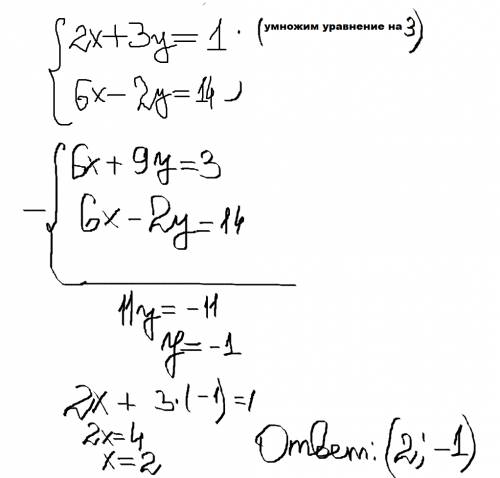 2x+3y=1 · (умножим уравнение на 3)
6x-2y=14,
6x+9y=3
- 6x-2y=14
11y=-11
y=-1
2x+3·(-1)=1
2x=4
x=2
Ответ: (2; -1)